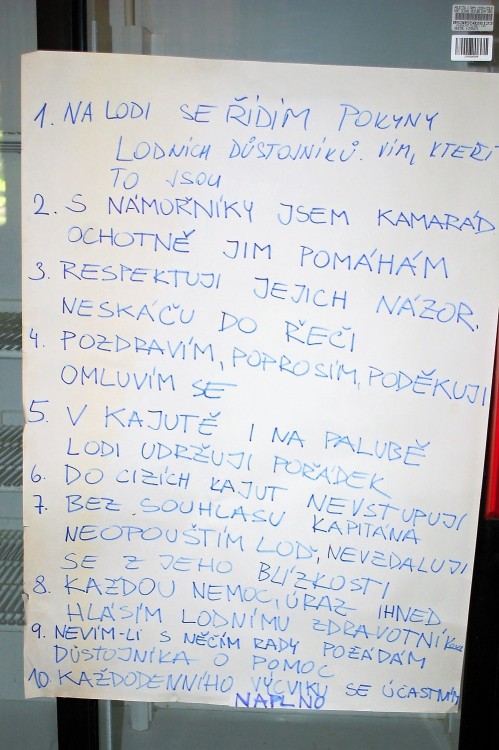 1. NA LODI SE ŘÍDÍM POKYNY
LODNÍCH DŮSTOJNÍKŮ. VÍM, KTEŘÍ
TO JSOU
2. S NÁMOŘNÍKY JSEM KAMARÁD
OCHOTNĚ JIM POMÁHÁM
3. RESPEKTUJI JEJICH NÁZOR.
NESKÁČU DO ŘEČI
4. POZDRAVÍM, POPROSÍM, PODĚKUJI
OMLUVÍM SE
5. V KAJUTĚ I NA PALUBĚ
LODI UDRŽUJI POŘÁDEK
6. DO CIZÍCH KAJUT NEVSTUPUJI
7. BEZ SOUHLASU KAPITÁNA
NEOPOUŠTÍM LOĎ, NEVZDALUJI
SE Z JEHO BLÍZKOSTI
8. KAŽDOU NEMOC, ÚRAZ IHNED
HLÁSÍM LODNÍMU ZDRAVOTNÍKOVI
9. NEVÍM-LI S NĚČÍM RADY POŽÁDÁM
DŮSTOJNÍKA O POMOC
10. KAŽDODENNÍHO VÝCVIKU SE ÚČASTNÍM
NAPLNO